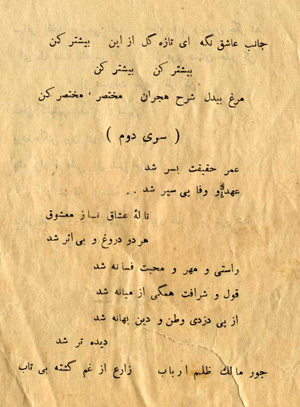 جانب عاشق نگه ای تازه گل از این بیشتر کن
بیشتر کن بیشتر کن
مرغ بیدل شرح هجران مختصر ، مختصر کن
( سری دوم )
عمر حقیقت بسر شد
عهد و وفا پی سپر شد . .
نالهٔ عشاق نماز معشوق
هر دو دروغ و بی اثر شد
راستی و مهر و محبت فسانه شد
قول و شرافت همگی از میانه شد
از پی دزدی وطن و دین بهانه شد
دیده تر شد
جور مالك ظلم ارباب زارع از غم گشته بی تاب